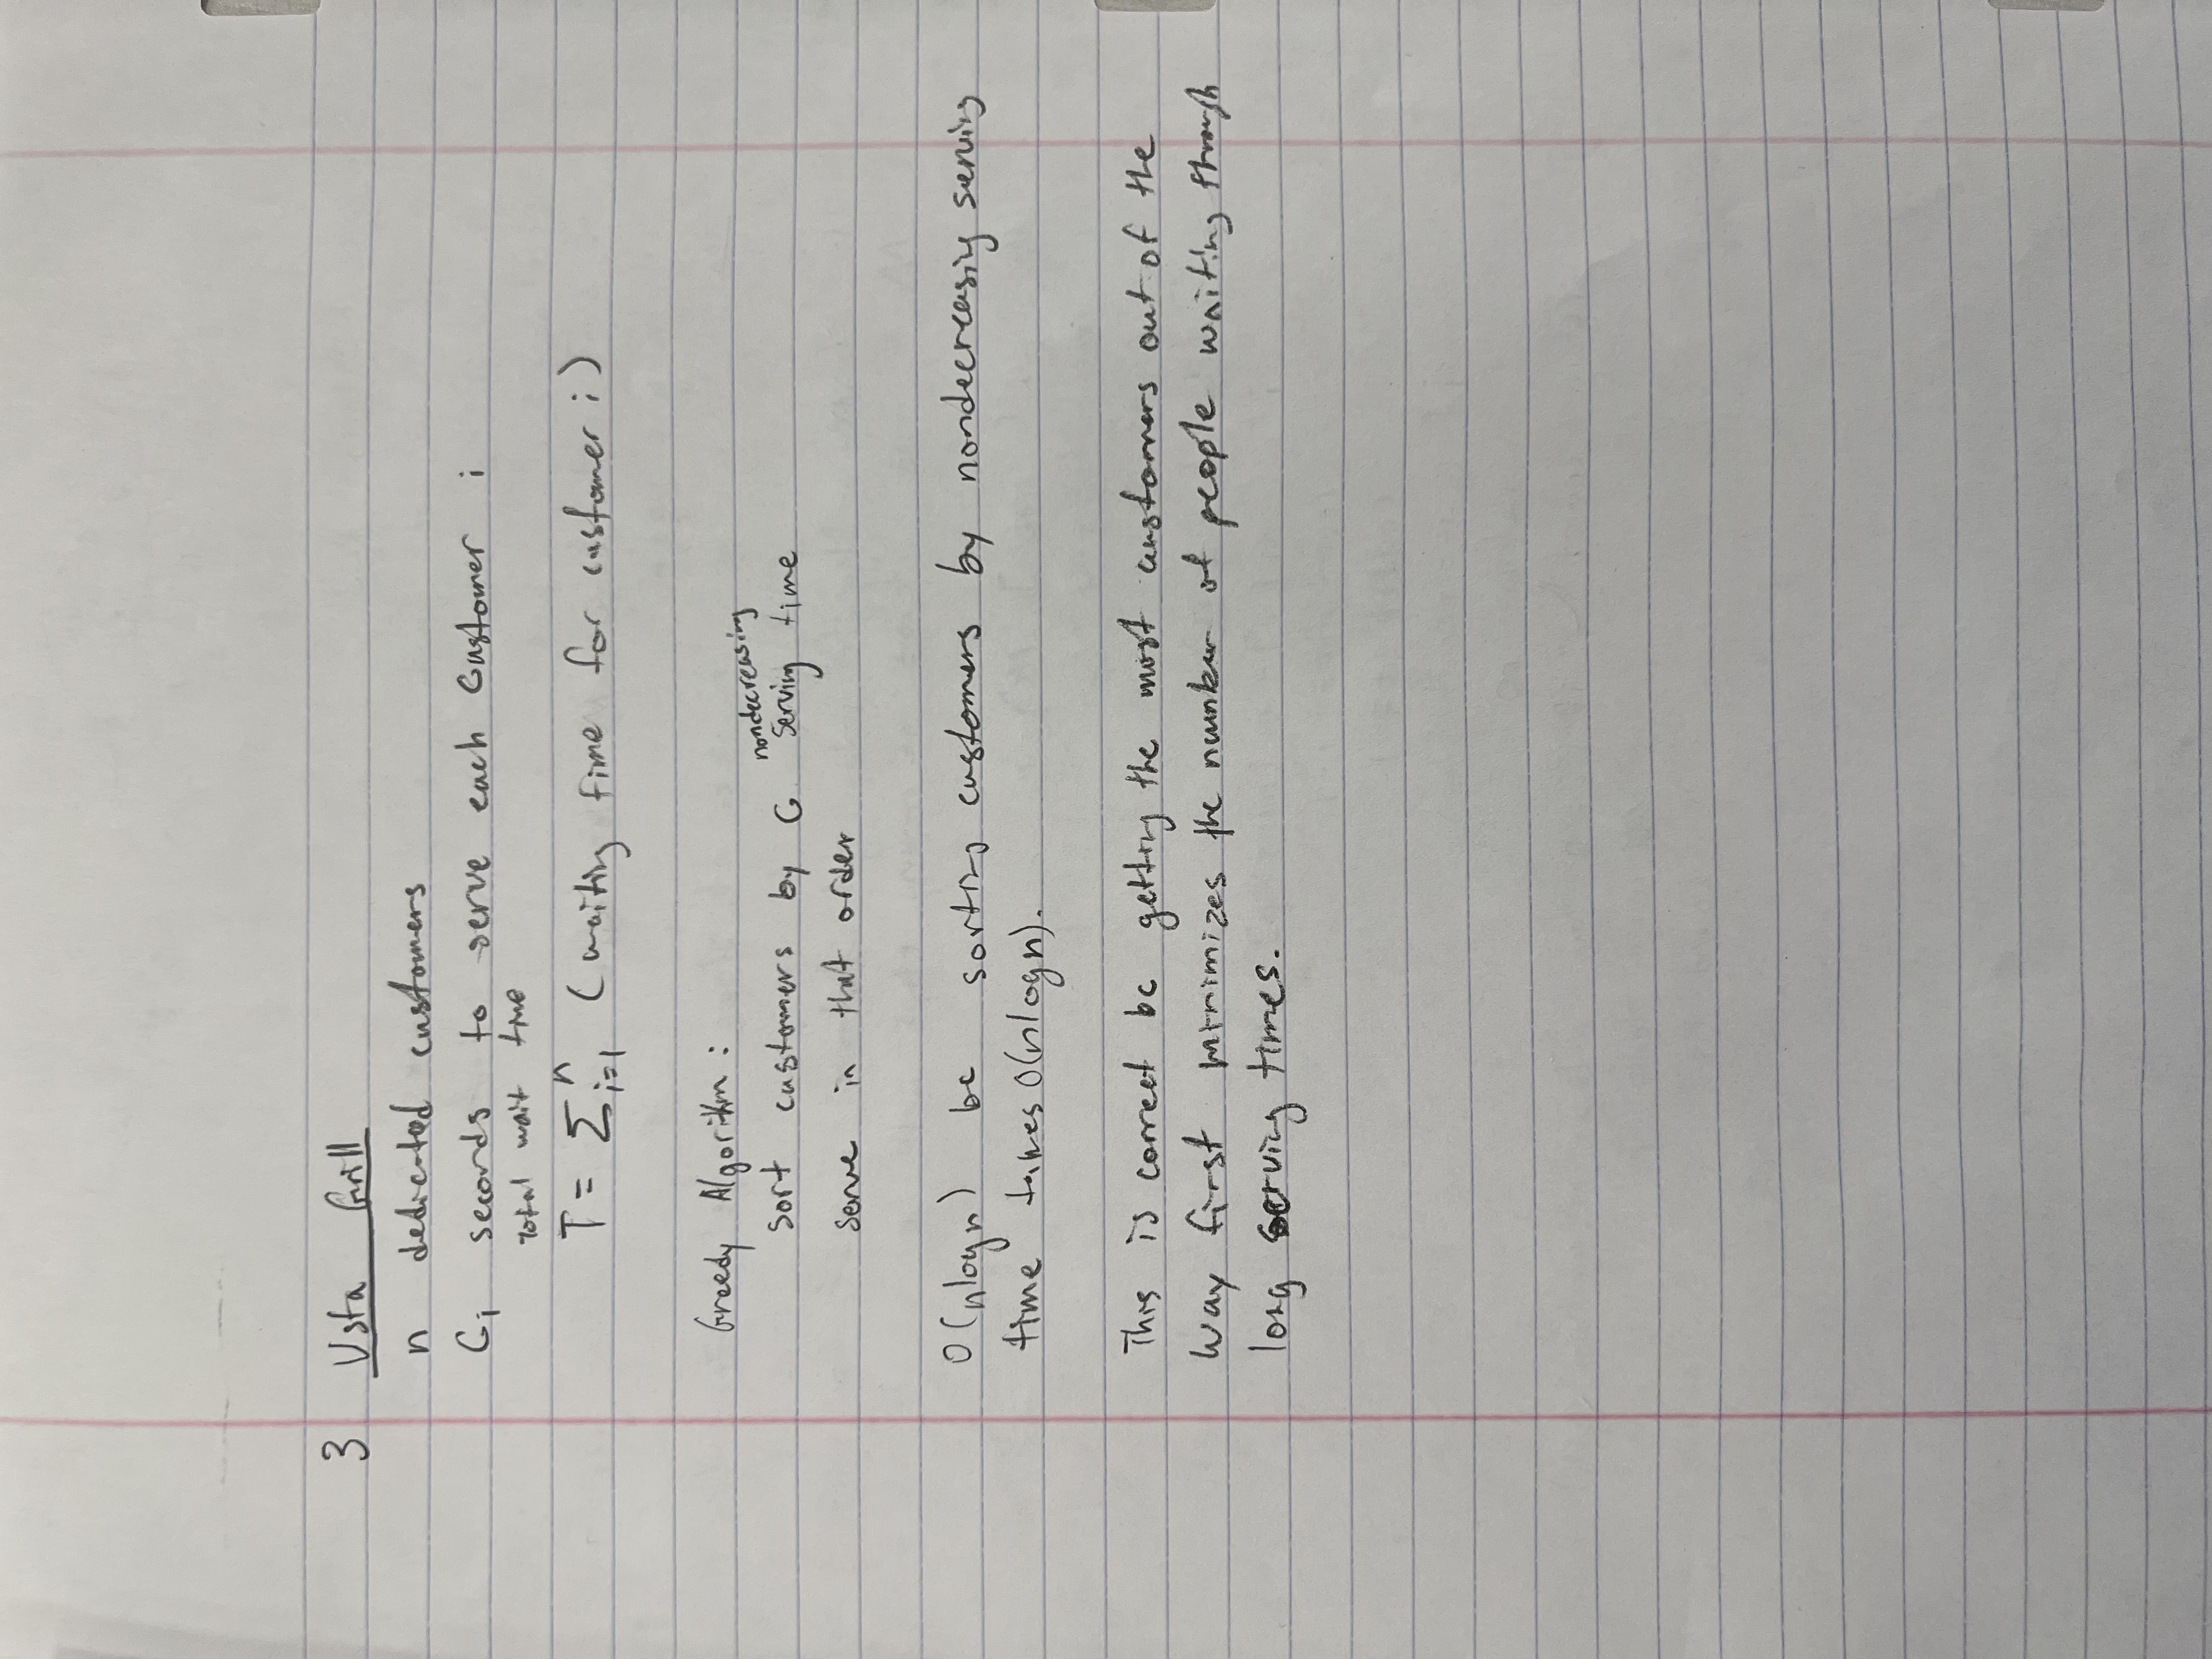 3 Vsta Grill
n dedicated customers
Ci seconds to serve each customer i
total wait time
T = Σ i=1 n (waiting time for customer i)
Greedy Algorithm:
nondecreasing
sort customers by G serving time
serve in that order
O(nlogn) bc sorting customers by nondecreasing serving
time takes O(nlogn).
This is correct bc getting the most customers out of the
way first minimizes the number of people waiting through
long serving times.